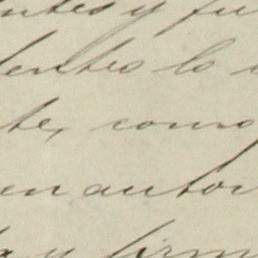 ntes y fu
dentes lo
te, como
en autor
da y firm